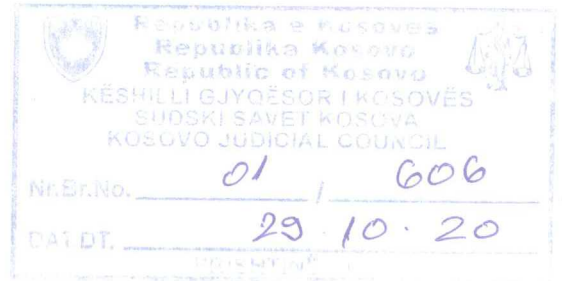 Republika e Kosovës
Republika Kosovo
Republic of Kosovo
KËSHILLI GJYQËSOR I KOSOVËS
SUDSKI SAVET KOSOVA
KOSOVO JUDICIAL COUNCIL
Nr.Br.No. 01 / 606
DAT.DT. 29.10.20